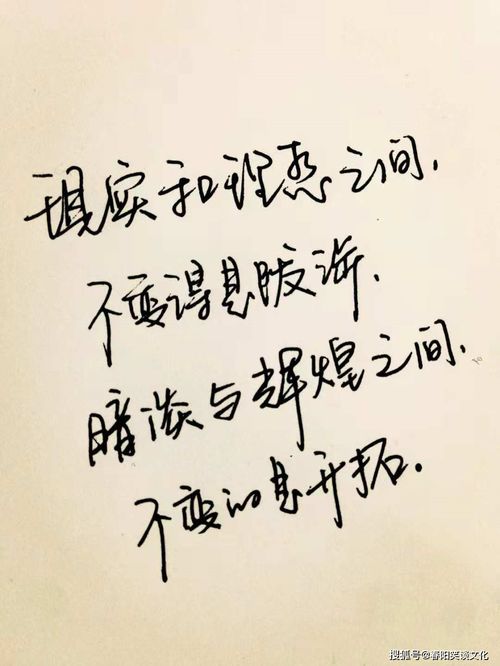 现实和理想之间,
不变得是跋涉,
暗淡与辉煌之间,
不变的是开拓.
搜狐号@春阳笑谈文化